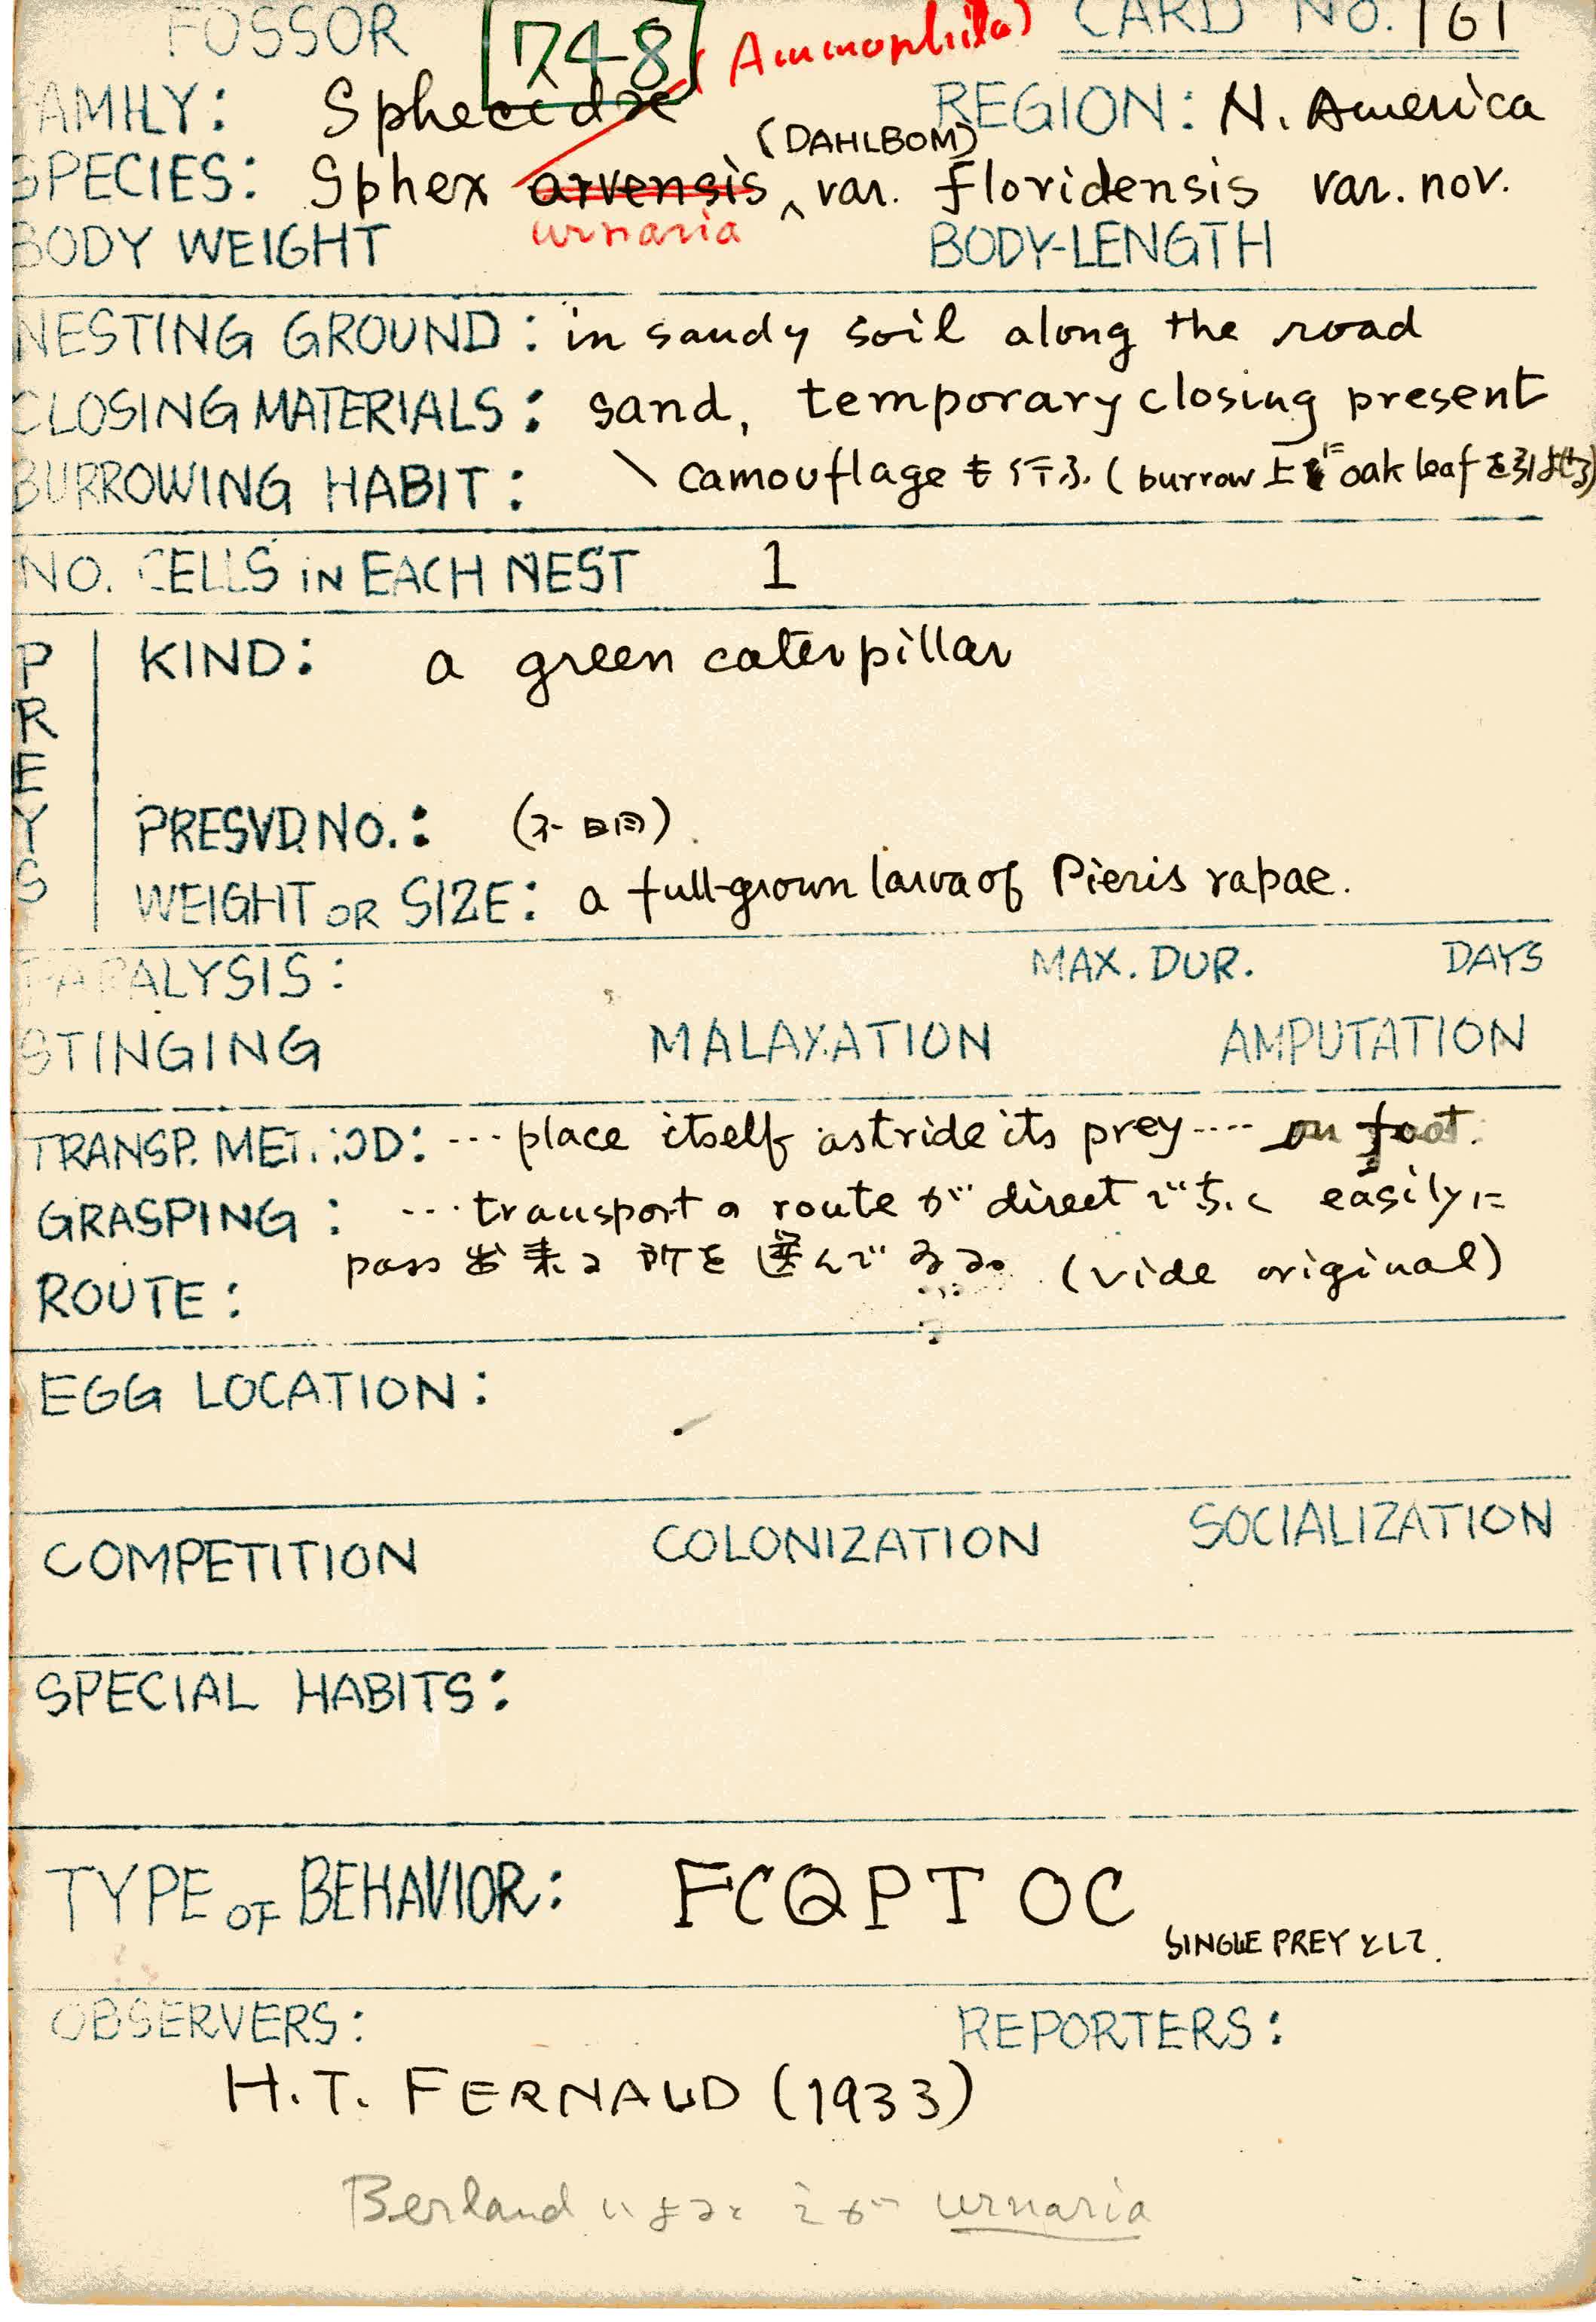 FOSSOR 748 (Ammophila) CARD NO. 161
FAMILY: Sphecidae REGION: N. America
(DAHLBOM)
SPECIES: Sphex arvensis ‸ var. floridensis var. nov.
urnaria
BODY WEIGHT BODY-LENGTH
NESTING GROUND: in sandy soil along the road
CLOSING MATERIALS: sand, temporary closing present
BURROWING HABIT: \ camouflage も行ふ. (burrow 上に oak leaf を引よせる)
NO. CELLS IN EACH NEST 1
PREYS
KIND: a green caterpillar
PRESVD. NO.: (不明)
WEIGHT OR SIZE: a full-grown larva of Pieris rapae.
PARALYSIS: MAX. DUR. DAYS
STINGING MALAXATION AMPUTATION
TRANSP. METHOD: --- place itself astride its prey ---- on foot.
GRASPING: --- transport の route が direct でなく easily に
pass 出来る所を選んでゐる。 (vide original)
ROUTE:
EGG LOCATION:
COMPETITION COLONIZATION SOCIALIZATION
SPECIAL HABITS:
TYPE OF BEHAVIOR: FCQPTOC
SINGLE PREY として.
OBSERVERS: REPORTERS:
H.T. FERNAUD (1933)
Berland によると urnaria